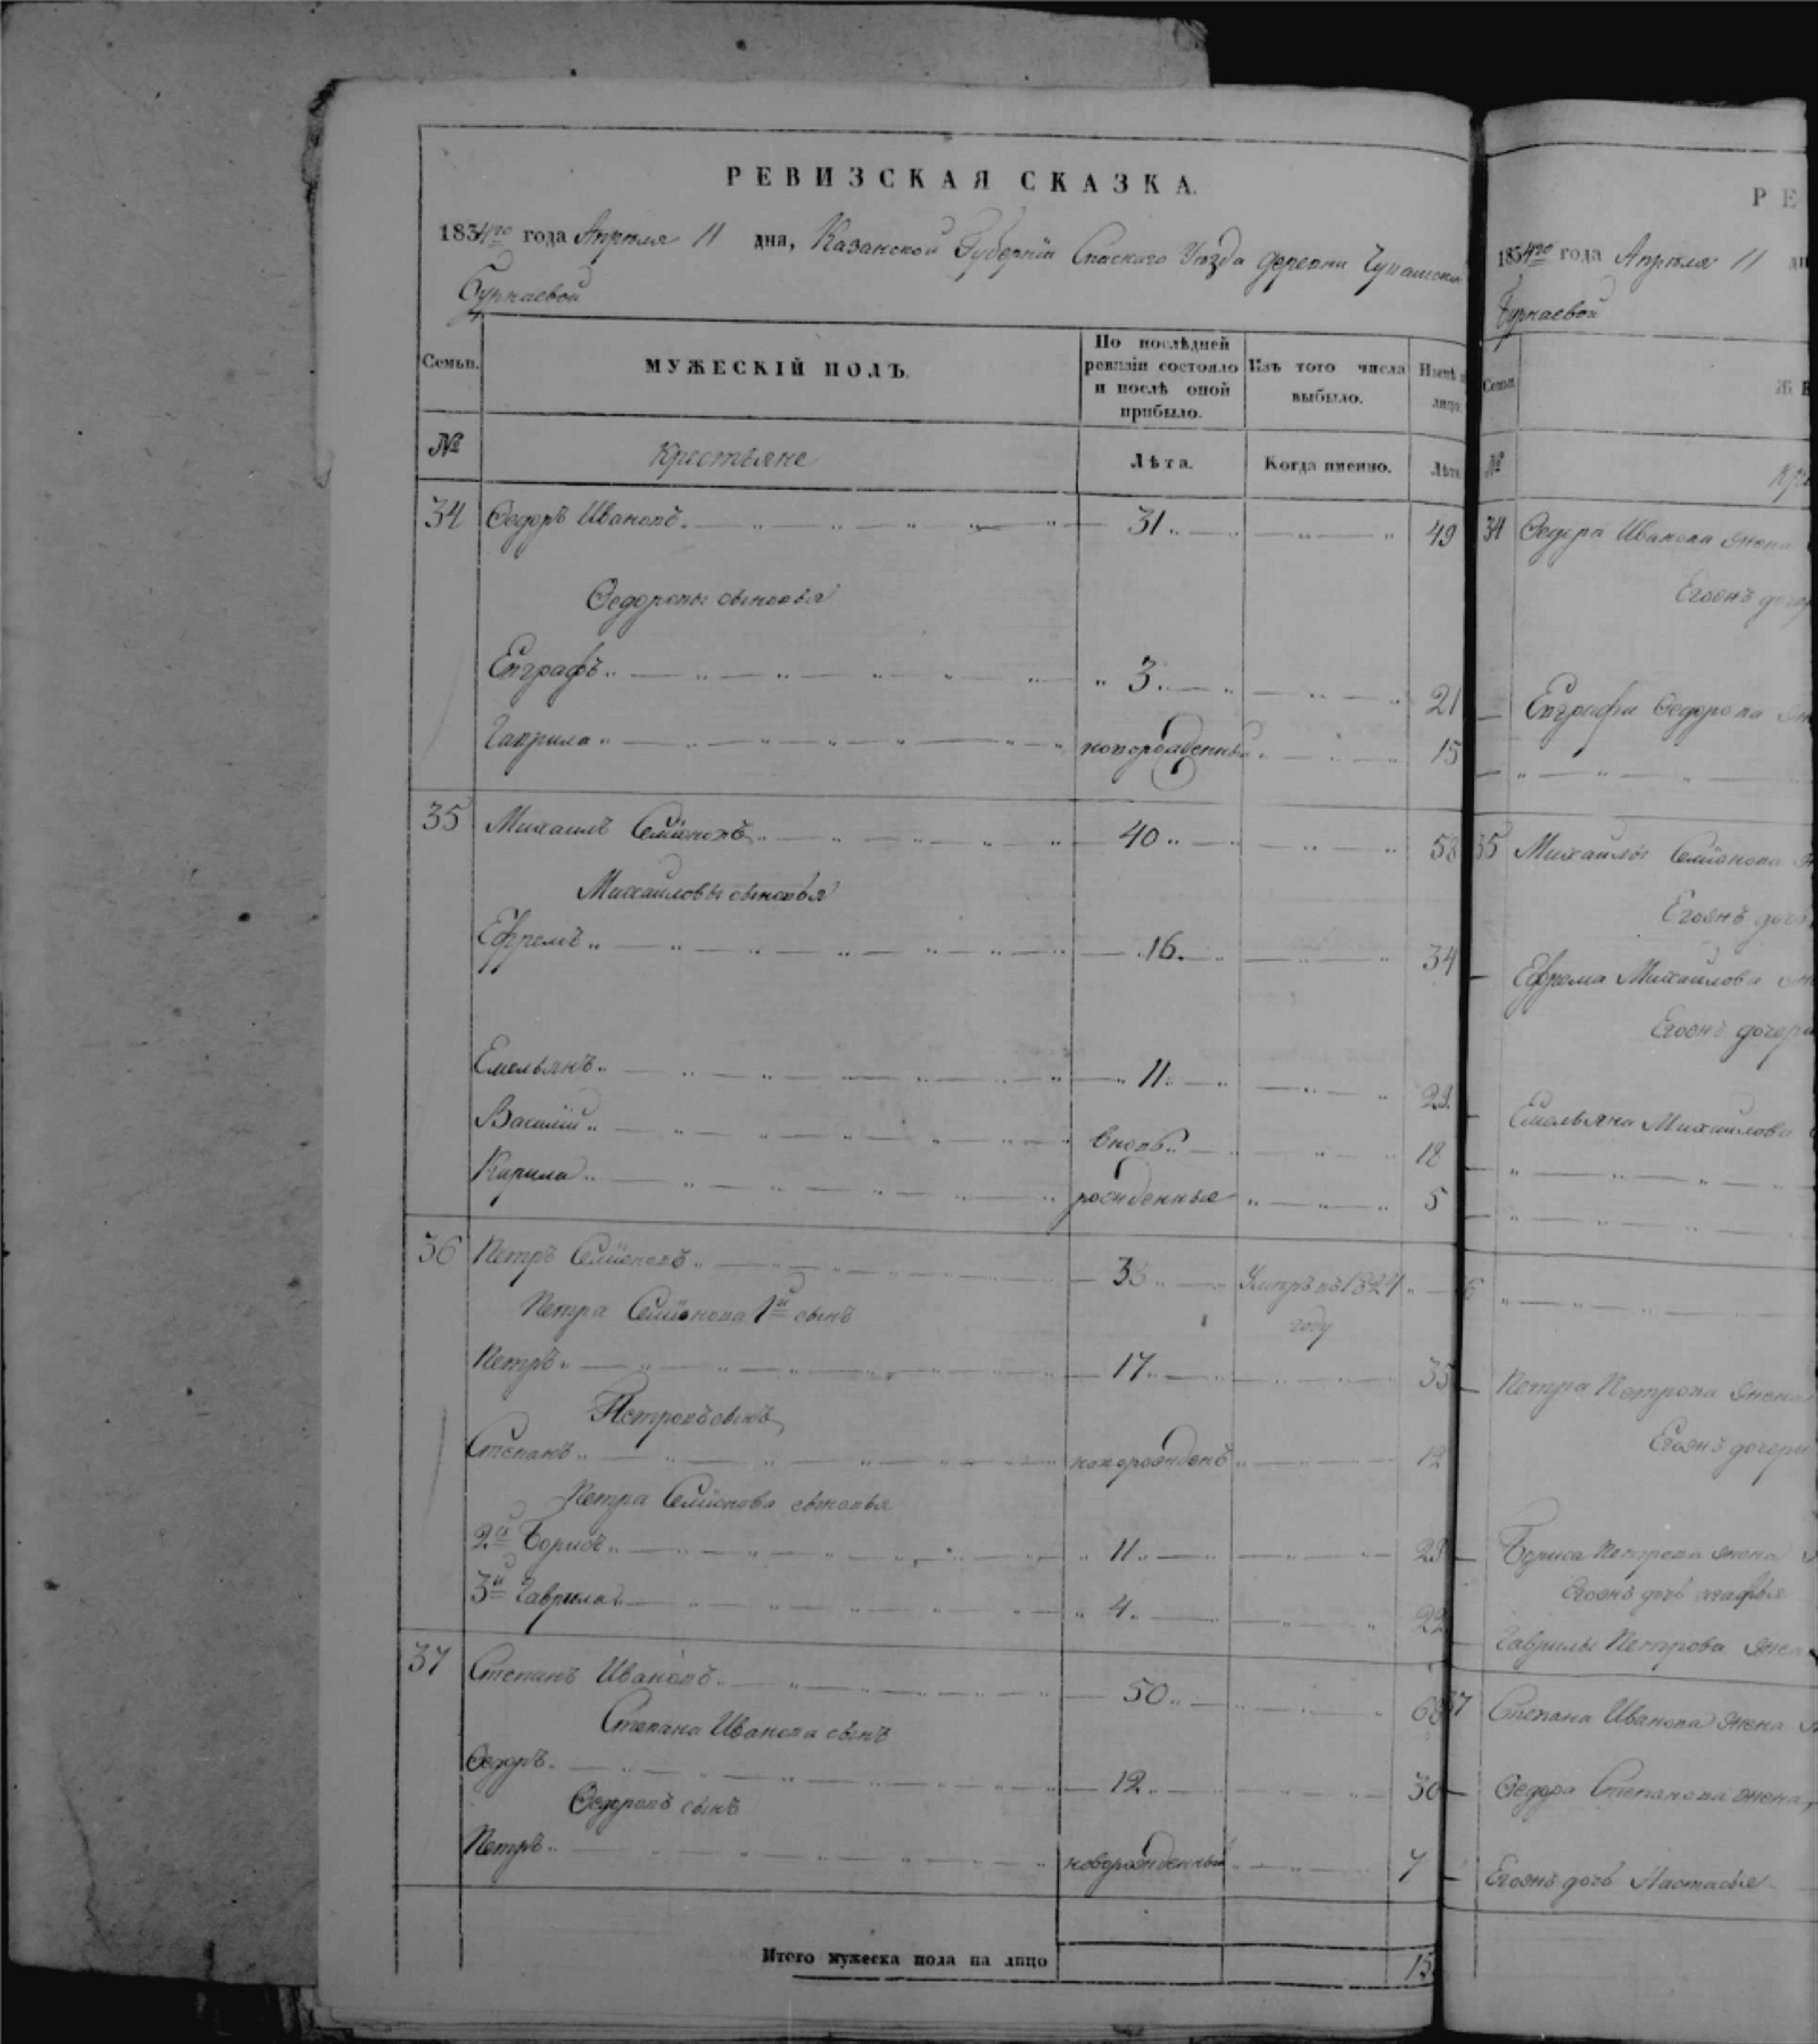 РЕВИЗСКАЯ СКАЗКА.
1834го года Апреля 11 дня, Казанской Губернiи Спаскаго Уѣзда деревни Чувашской
Бурнаевой
Семьи. МУЖЕСКIЙ ПОЛЪ. По послѣдней ревизiи состояло и послѣ оной прибыло. Изъ того числа выбыло. Нынѣ на лицо.
№ Крестьяне Лѣта. Когда именно. Лѣта
34 Ѳедоръ Ивановъ 31 49
Ѳедоровы сыновья
Евграфъ 3 21
Гаврила новорожденный 15
35 Михаилъ Семiоновъ 40 58
Михаиловы сыновья
Ефремъ 16 34
Емельянъ 11 29
Василiй вновь 18
Кирила рожденные 5
36 Петръ Семiоновъ Умтръ въ 1824
году
Петра Семiонова 1й сынъ
Петръ 17 35
Петровъ сынъ
Степанъ новорожденъ 12
Петра Семiонова сыновья
2й Борисъ 11 29
3й Гаврила 4 22
37 Степанъ Ивановъ 50 68
Степана Иванова сынъ
Ѳедоръ 12 30
Ѳедоровъ сынъ
Петръ новорожденный 7
Итого мужеска пола на лицо 15
РЕ
1834го года Апреля 11 дн
Бурнаевой
Семьи ЖЕ
№ Кре
34 Ѳедора Иванова жена
Егоонъ дочер
Евграфа Ѳедорова
35 Михаилы Семiонова
Егоонъ дочь
Ефрема Михаилова
Егоонъ дочери
Емельяна Михаилова
Петра Петрова жена
Егоонъ дочери
Бориса Петрова жена
Егоонъ дочь Агафья
Гаврилы Петрова жена
37 Степана Иванова жена
Ѳедора Степанова жена
Егоонъ дочь Настасья